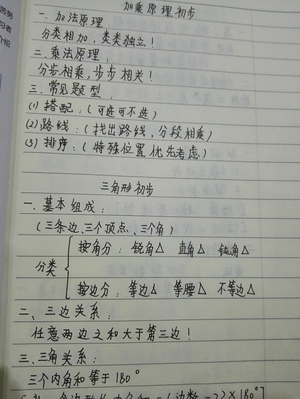 加乘原理初步
一.加法原理
分类相加,类类独立!
二.乘法原理
分步相乘,步步相关!
三.常见题型,
(1) 搭配:(可选可不选)
(2) 路线:(找出路线,分段相乘)
(3) 排序:(特殊位置优先考虑)
三角形初步
一.基本组成:
(三条边、三个顶点、三个角)
按角分:锐角△ 直角△ 钝角△
分类
按边分:等边△ 等腰△ 不等边△
二、三边关系:
任意两边之和大于第三边!
三.三角关系:
三个内角和等于180°
(边数-2)×180°]